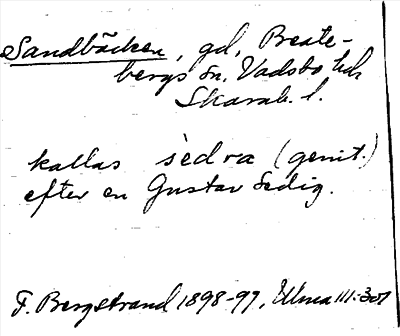 Sandbäcken, gd, Beate-
bergs sn, Vadsbo hd
Skarab. l.
kallas sèdra (genit.)
efter en Gustav Sedig.
F. Bergstrand 1898-99, Ulma 111:301